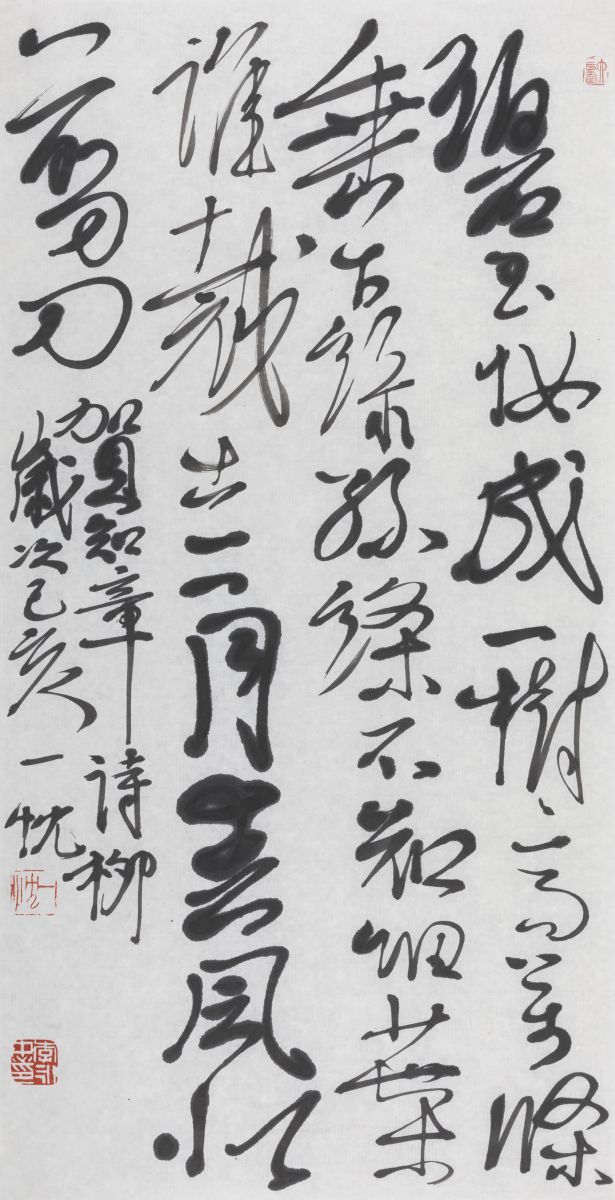 碧玉妝成一樹高萬條
垂下綠絲絛不知細葉
誰裁出二月春風似
剪刀
賀知章詩柳
歲次己亥一忱